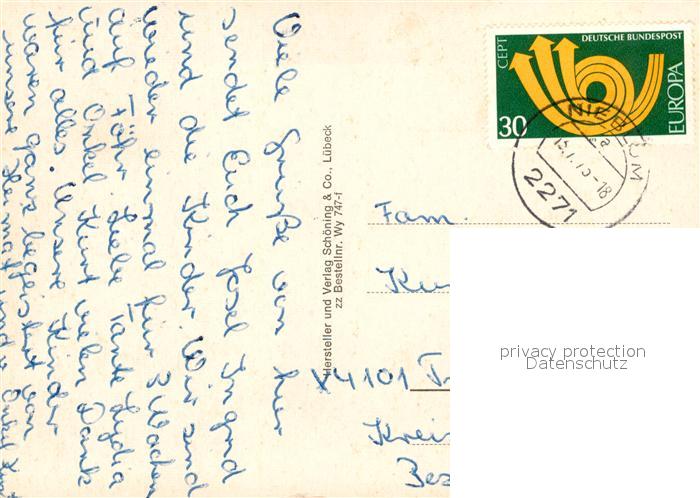 Viele Grüße von hier
sendet Euch Josel Ingrid
und die Kinder. Wir sind
wieder einmal für 3 Wochen
auf Föhr. Liebe Tante Lydia
und Onkel Kurt vielen Dank
für alles. Unsere Kinder
waren ganz begeistert von
unsere Heimat und Onkel Kurt
Hersteller und Verlag Schöning & Co., Lübeck
zz Bestellnr. Wy 747-f
CEPT
DEUTSCHE BUNDESPOST
EUROPA
30
NIEBLUM
a
-18
2271
Fam.
X4101
privacy protection
Datenschutz